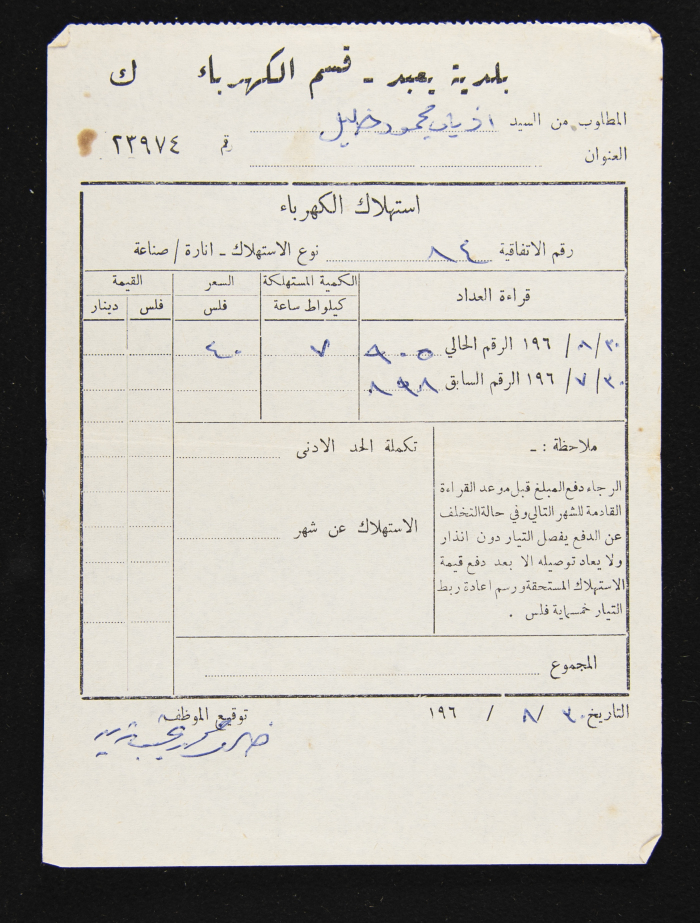 بلدية يعبد - قسم الكهرباء ك
المطلوب من السيد ذياب محمود خليل
رقم ٢٣٩٧٤
العنوان
استهلاك الكهرباء
رقم الاتفاقية ٨٤ نوع الاستهلاك - انارة / صناعة
قراءة العداد الكمية المستهلكة السعر القيمة
كيلواط ساعة فلس فلس دينار
٣٠/ ٨/ ١٩٦ الرقم الحالي ٩٠٥ ٧ ٤٠
٣٠/ ٧/ ١٩٦ الرقم السابق ٨٩٨
ملاحظة : -
الرجاء دفع المبلغ قبل موعد القراءة
القادمة للشهر التالي وفي حالة التخلف
عن الدفع يفصل التيار دون انذار
ولا يعاد توصيله الا بعد دفع قيمة
الاستهلاك المستحقة ورسم اعادة ربط
التيار خمسماية فلس .
تكملة الحد الادنى
الاستهلاك عن شهر
المجموع
التاريخ ٣٠ /٨ / ١٩٦
توقيع الموظف